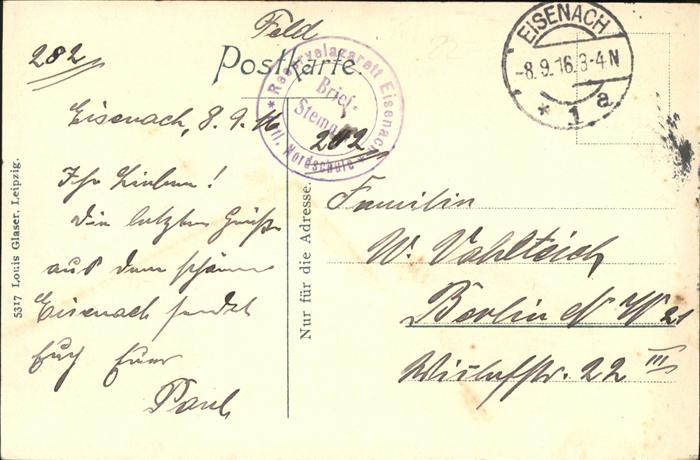 Feld
Postkarte.
282
Reservelazarett Eisenach
Brief-
Stempel
Abtl. Nordschule
282
EISENACH
-8.9.16. 3-4 N
* 1 a
Eisenach, 8.9.16
Ihr Lieben!
Die letzten Grüße
aus dem schönen
Eisenach sendet
Euch Euer
Paul
Familie
W. Vahlteich
Berlin N W 21
Wiclefstr. 22 III
Nur für die Adresse.
5317 Louis Glaser, Leipzig.